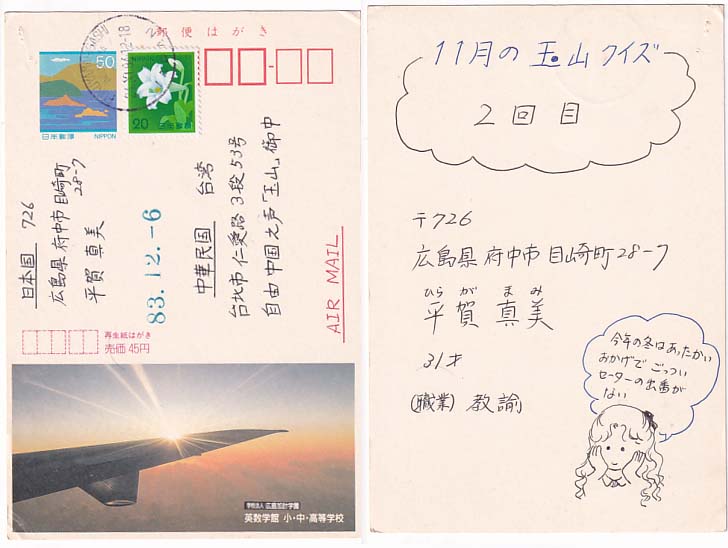 郵便はがき
50
日本郵便 NIPPON
20 日本郵便
日本国 726
広島県府中市目崎町
28-7
平賀 真美
83.12.-6
中華民国 台湾
台北市仁愛路3段53号
自由中国之声「玉山」御中
AIR MAIL
再生紙はがき
売価45円
学校法人 広島加計学園
英数学館 小・中・高等学校
11月の玉山クイズ
2回目
〒726
広島県府中市目崎町28-7
ひらが まみ
平賀 真美
31才
(職業) 教諭
今年の冬はあったかい
おかげでごっつい
セーターの出番が
ない